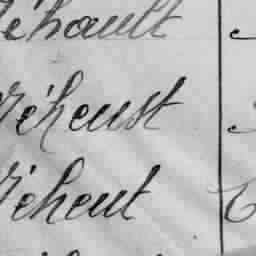 éhault
éheust
éheut